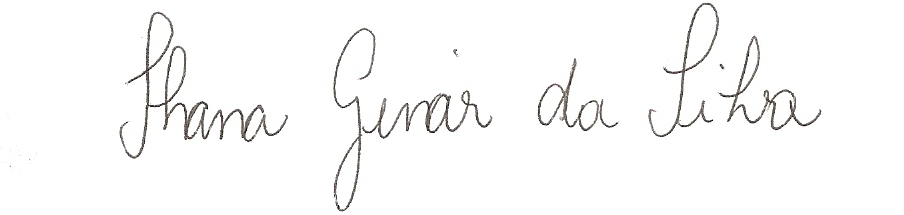 Shana Gimar da Silva